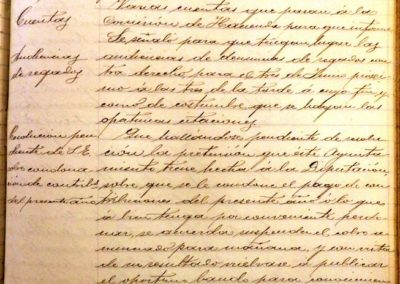 Cuentas
Varias cuentas que pasan á la
Comisión de Hacienda para que informe
Audiencias
de regados
Se señaló para que tengan lugar las
audiencias de denuncias de regados con
tra derecho para el tres de Junio proxi
mo á las tres de la tarde á cuyo fin y
como de costumbre que se hagan las
oportunas citaciones
dente de S. E.
sobre condona
ción de contribs
del presente año
Que hallandose pendiente de resolu
ción la pretensión que este Ayunta
miento tiene hecha á la Diputación
sobre que se le condone el pago de con
tribuciones del presente año ó lo que
á bien tenga por conveniente perdo
nar, se acuerda suspender el cobro a
nunciado para mañana, y con vista
de su resultado vuelvase á publicar
el oportuno bando para conocimien